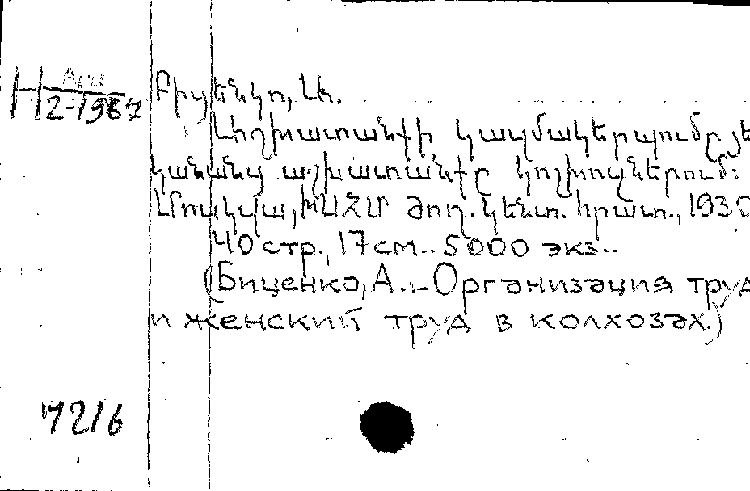 H Арм 2-1987
Բիցենկո, Ա.
Աշխատանքի կազմակերպումը
կանանց աշխատանքը կոլխոզներում:
Մոսկվա, ԽՍՀՄ ժող. կենտ. հրատ., 193
40 стр., 17 см.. 5000 экз..
(Биценко, А.. - Организация труда
и женский труд в колхозах.)
7216